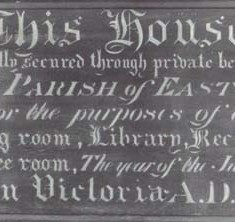 This House
lly secured through private be
PARISH of EAST
or the purposes of
g room, Library, Rec
ce room, The year of the
n Victoria A.D.